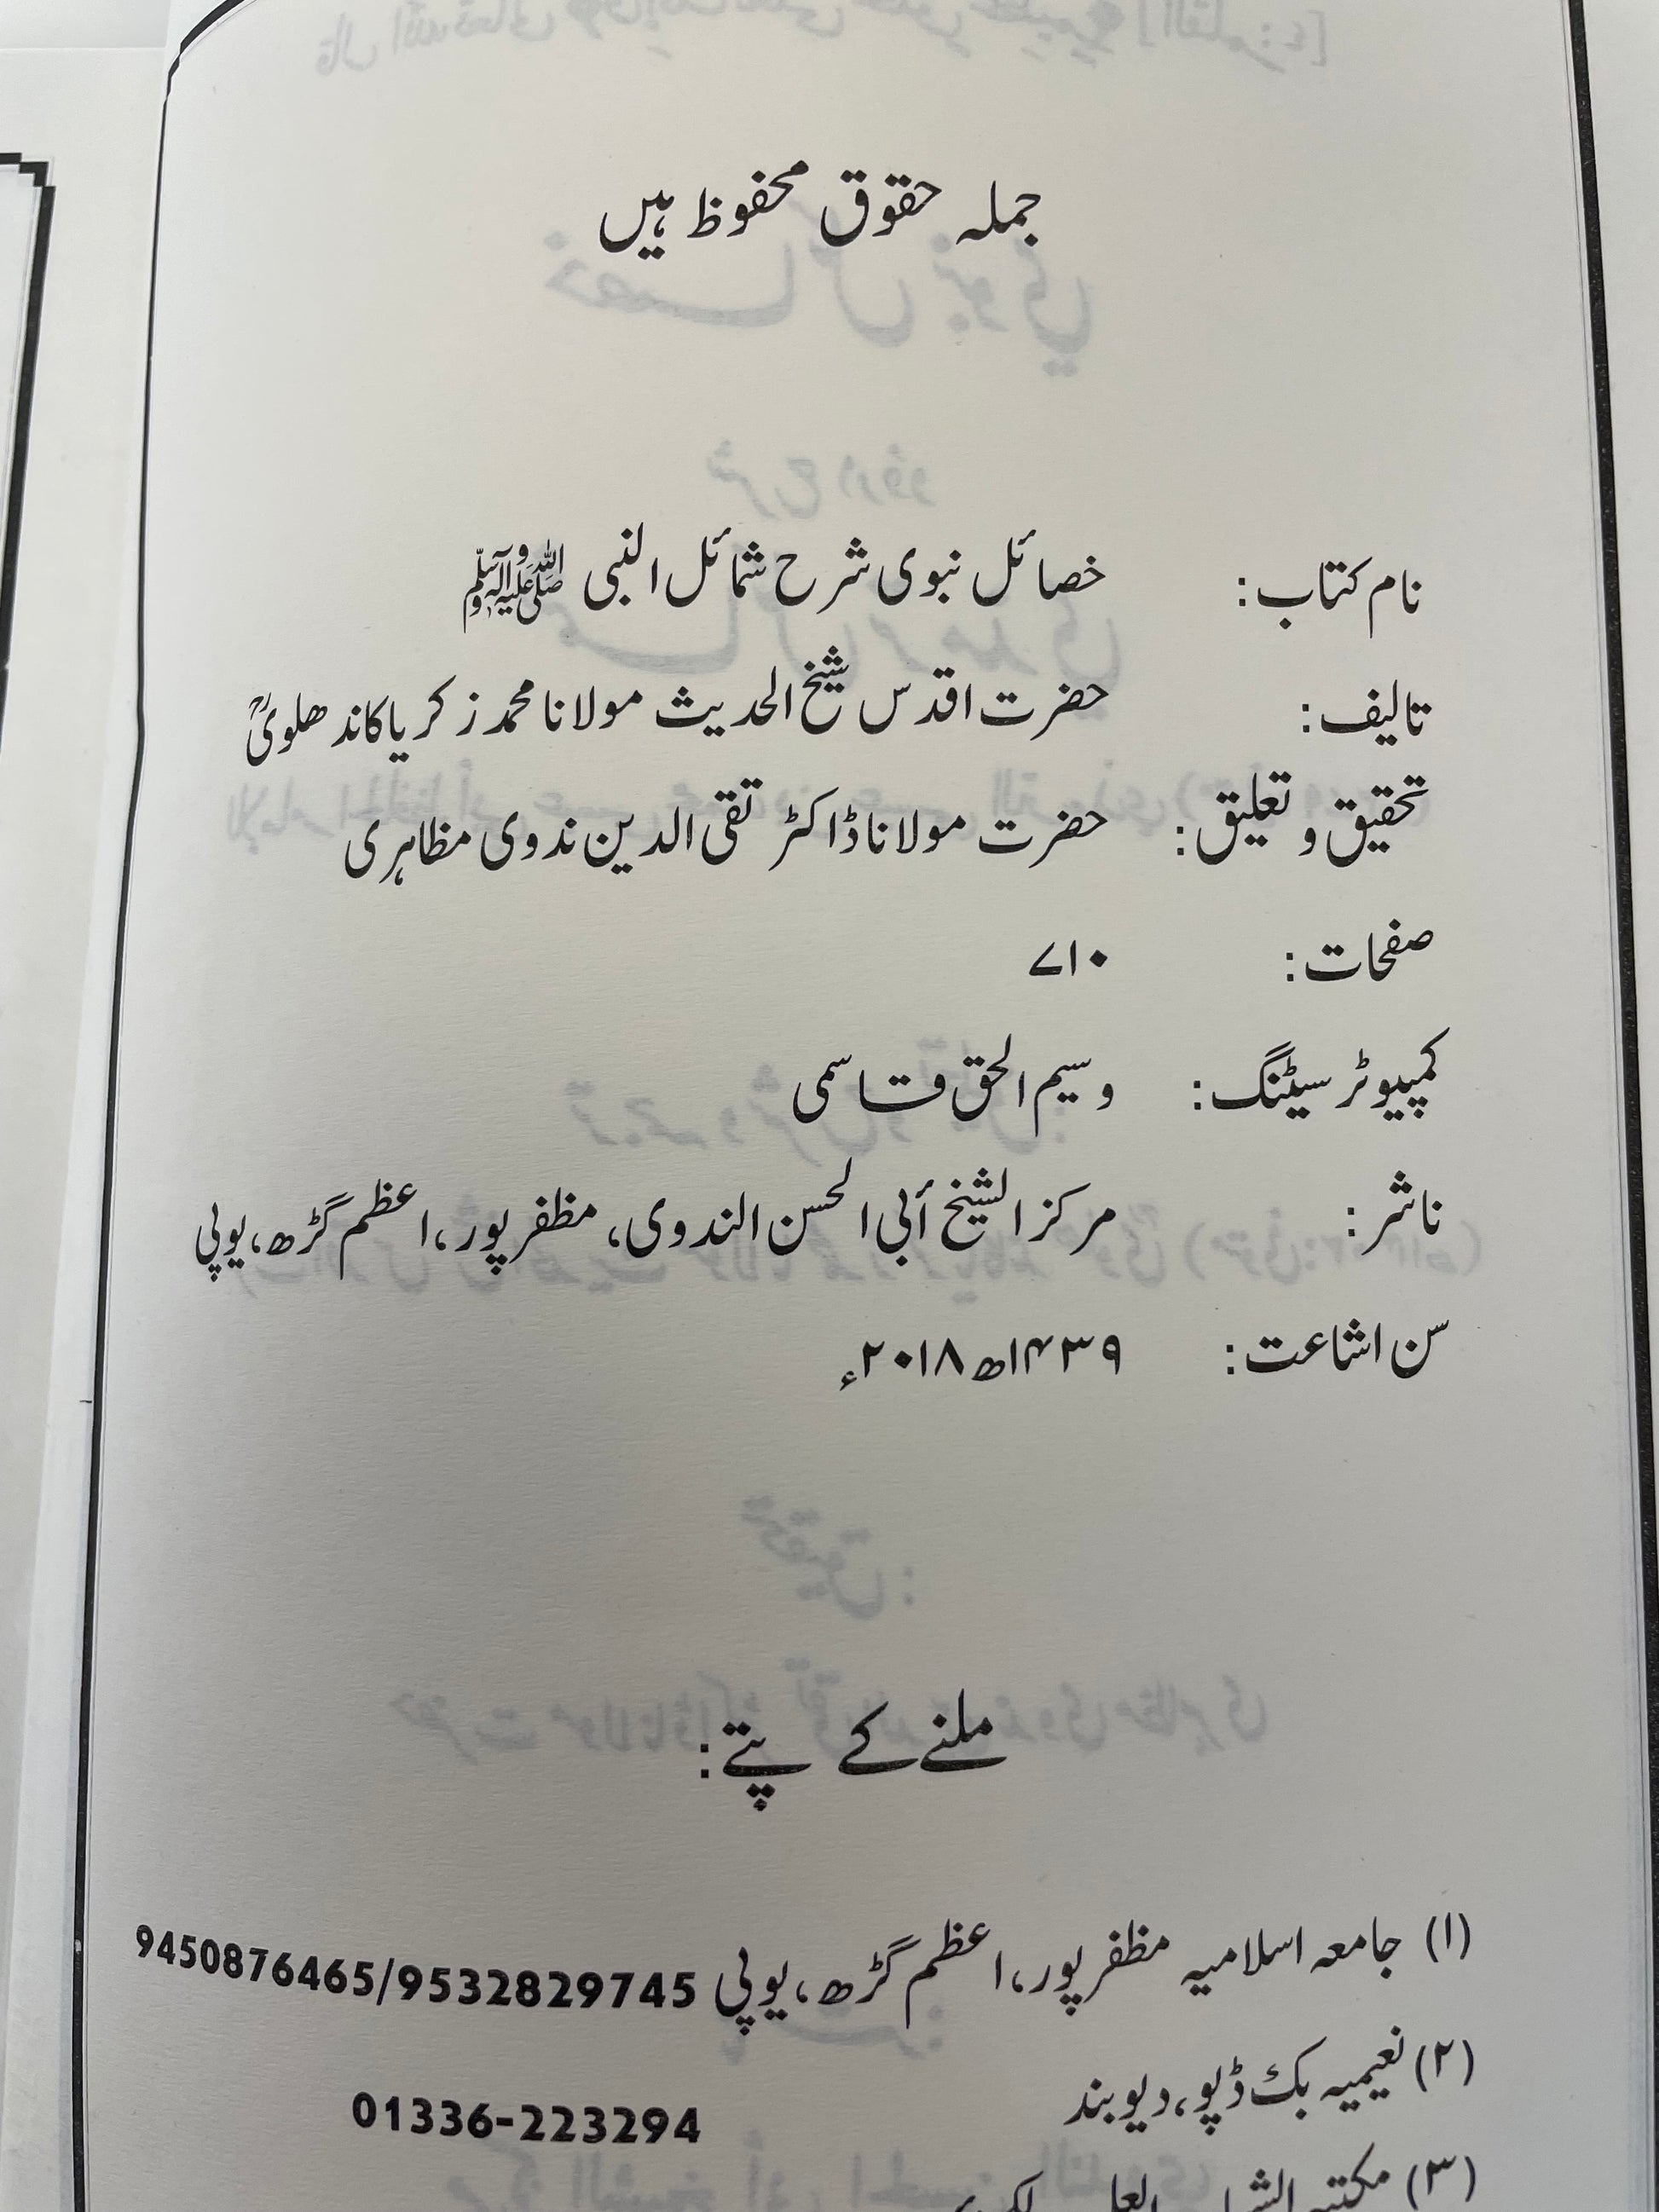 جملہ حقوق محفوظ ہیں
نام کتاب: خصائل نبوی شرح شمائل النبی ﷺ
تالیف: حضرت اقدس شیخ الحدیث مولانا محمد زکریا کاندھلویؒ
تحقیق و تعلیق: حضرت مولانا ڈاکٹر تقی الدین ندوی مظاہری
صفحات: ۷۱۰
کمپیوٹر سیٹنگ: وسیم الحق قاسمی
ناشر: مرکز الشیخ أبی الحسن الندوی، مظفر پور، اعظم گڑھ، یوپی
سن اشاعت: ۱۴۳۹ھ ۲۰۱۸ء
ملنے کے پتے:
(۱) جامعہ اسلامیہ مظفر پور، اعظم گڑھ، یوپی 9450876465/9532829745
(۲) نعیمیہ بک ڈپو، دیوبند 01336-223294
(۳) مکتبہ